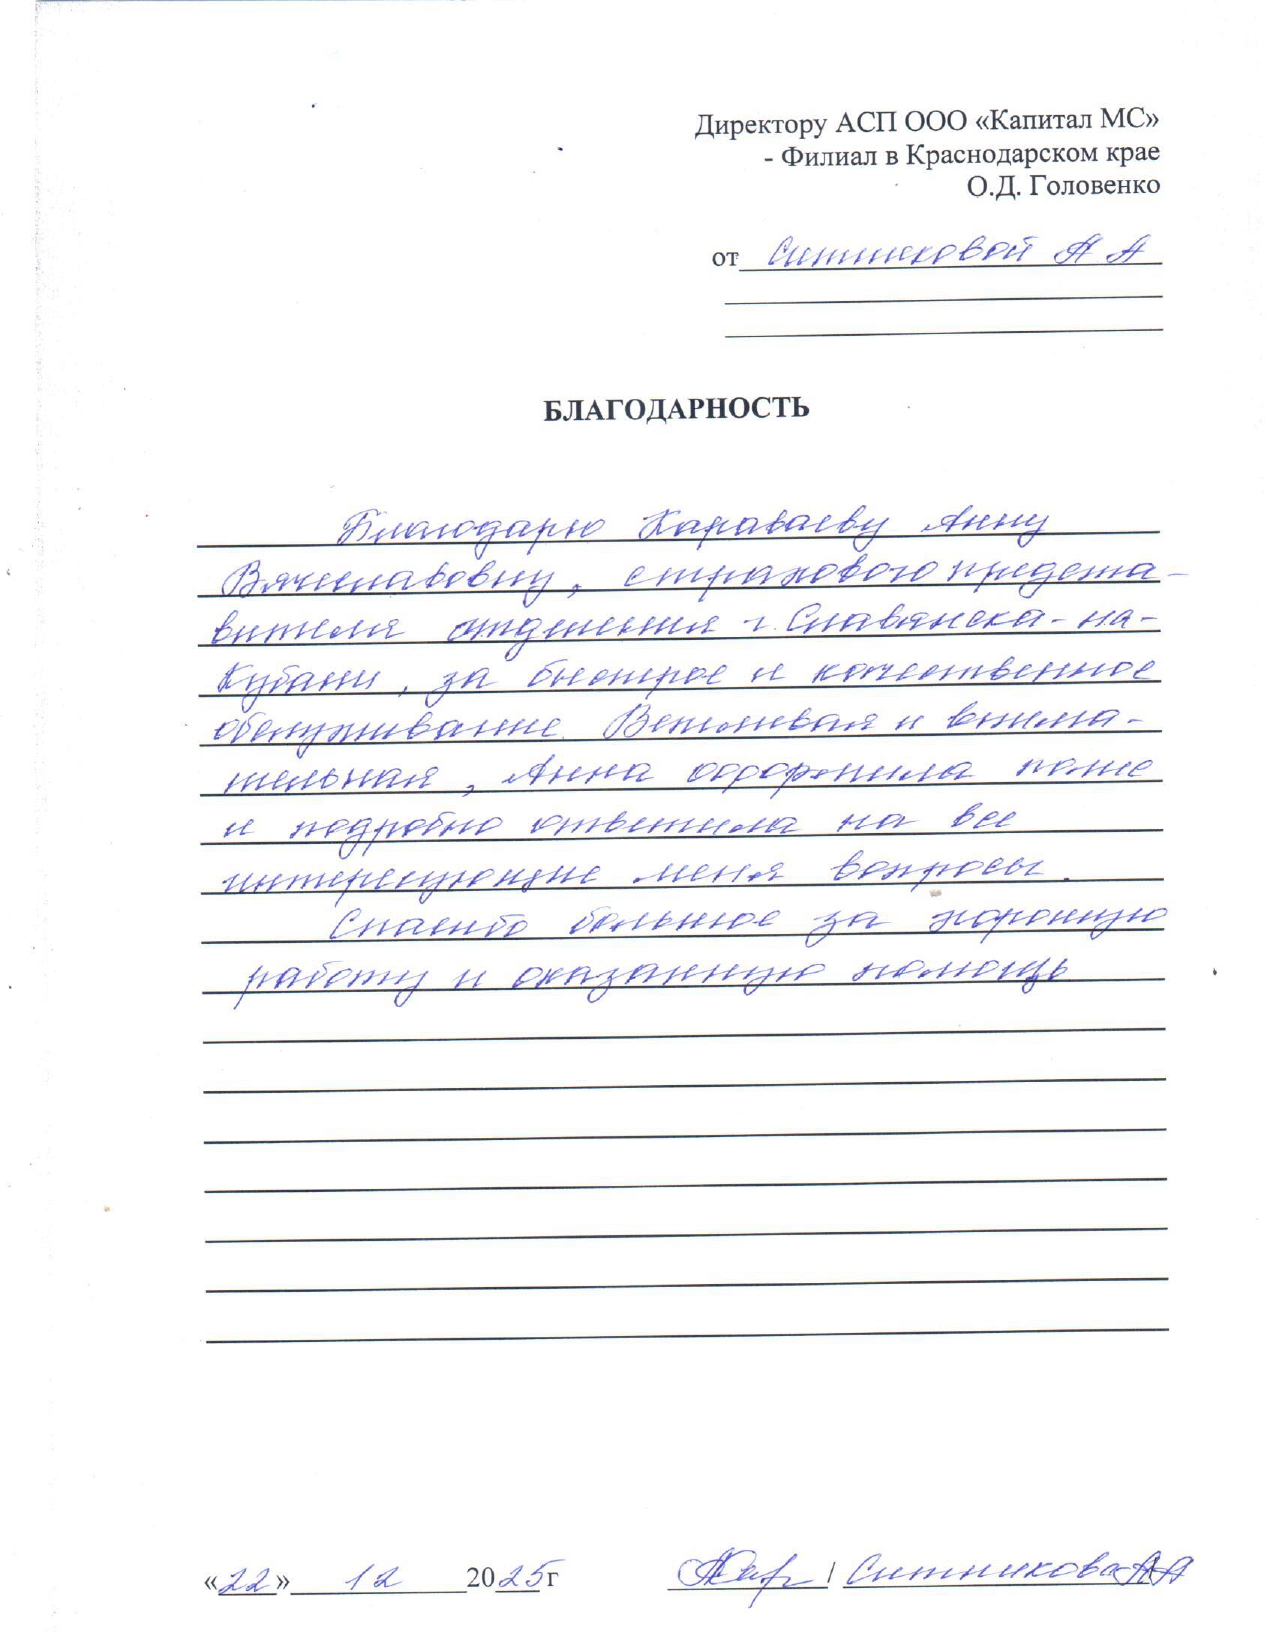 Директору АСП ООО «Капитал МС»
- Филиал в Краснодарском крае
О.Д. Головенко
от Ситниковой А А
БЛАГОДАРНОСТЬ
Благодарю Караваеву Анну
Вячеславовну, страхового предста-
вителя отделения г. Славянска-на-
Кубани, за быстрое и качественное
обслуживание. Вежливая и внима-
тельная, Анна оформила полис
и подробно ответила на все
интересующие меня вопросы.
Спасибо большое за хорошую
работу и оказанную помощь
«22» 12 2025 г / Ситникова АА